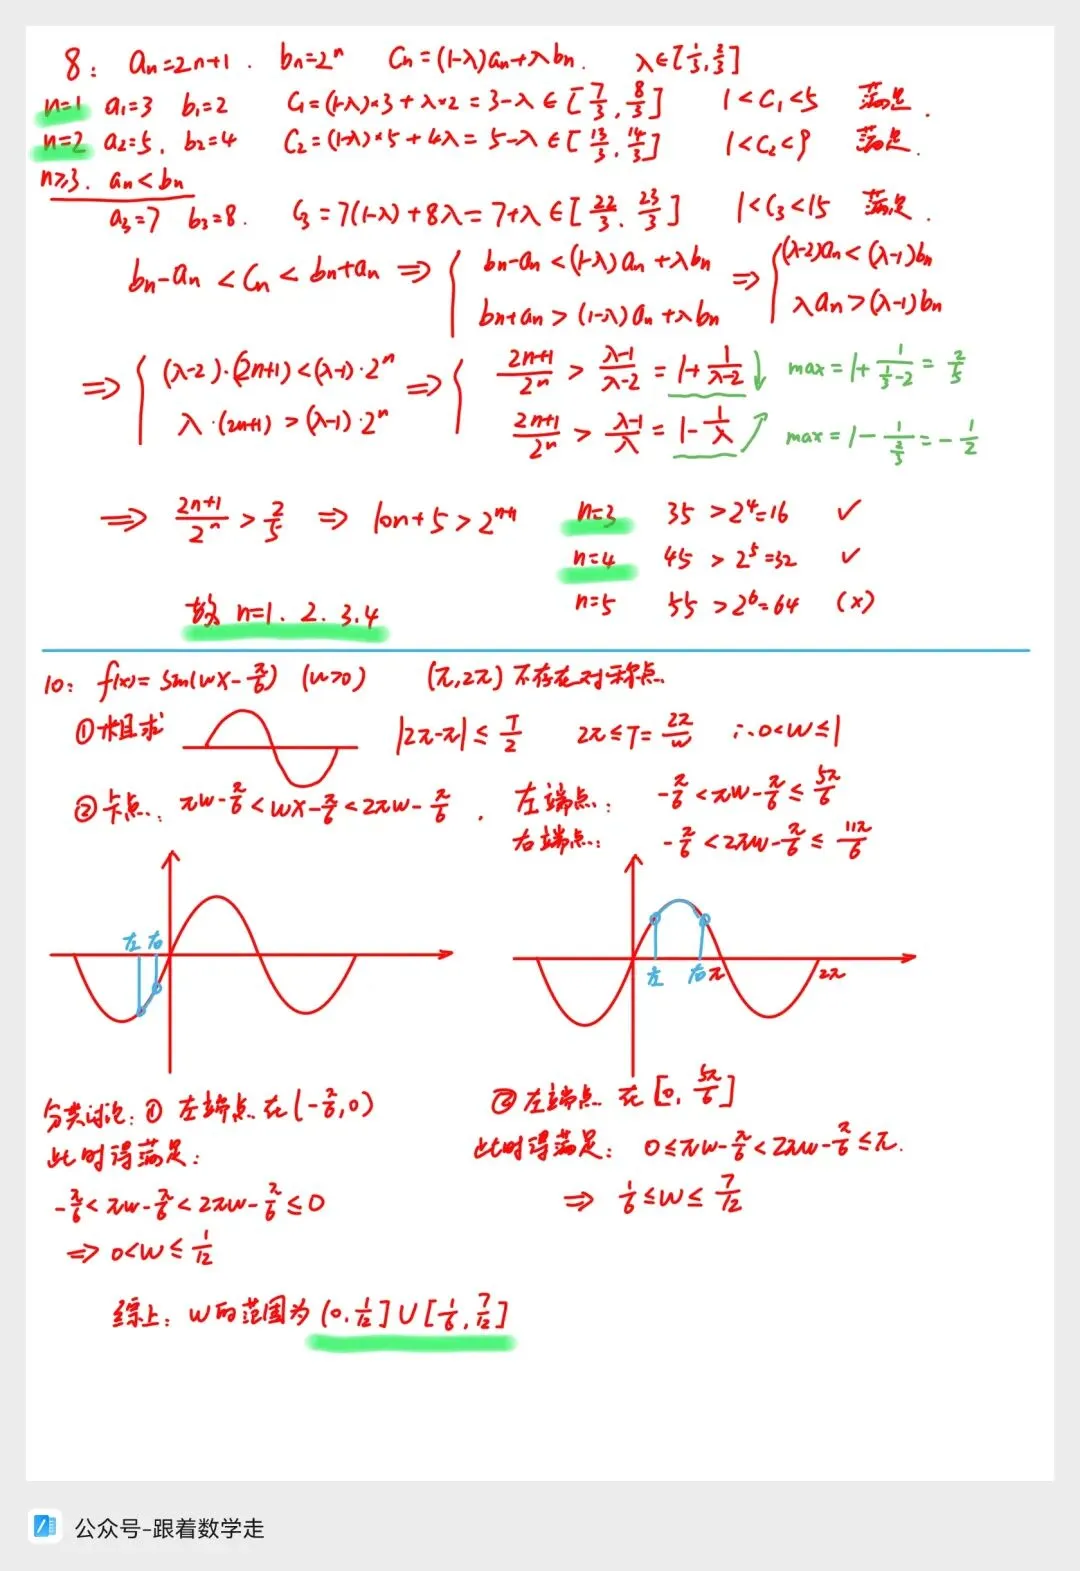 8: an=2n+1. bn=2ⁿ Cn=(1-λ)an+λbn. λ∈[1/3, 2/3]
n=1 a₁=3 b₁=2 C₁=(1-λ)×3+λ×2=3-λ∈[7/3, 8/3] 1<C₁<5 满足.
n=2 a₂=5, b₂=4 C₂=(1-λ)×5+4λ=5-λ∈[13/3, 14/3] 1<C₂<9 满足.
n≥3. an<bn
a₃=7 b₃=8. C₃=7(1-λ)+8λ=7+λ∈[22/3, 23/3] 1<C₃<15 满足.
bn-an<Cn<bn+an ⇒ { bn-an<(1-λ)an+λbn ⇒ { (λ-2)an<(λ-1)bn
bn+an>(1-λ)an+λbn λan>(λ-1)bn
⇒ { (λ-2)·(2n+1)<(λ-1)·2ⁿ ⇒ { (2n+1)/2ⁿ > (λ-1)/(λ-2) = 1+1/(λ-2) ↓ max=1+1/(1/3-2)=2/5
λ·(2n+1)>(λ-1)·2ⁿ (2n+1)/2ⁿ > (λ-1)/λ = 1-1/λ ↗ max=1-1/(2/3)=-1/2
⇒ (2n+1)/2ⁿ > 2/5 ⇒ 10n+5>2ⁿ⁺¹ n=3 35>2⁴=16 ✓
n=4 45>2⁵=32 ✓
n=5 55>2⁶=64 (×)
故 n=1. 2. 3. 4
10: f(x)=sin(wx-π/6) (w>0) (π,2π)不存在对称点.
①粗求 |2π-π|≤T/2 2π≤T=2π/w ∴0<w≤1
②卡点: πw-π/6<wx-π/6<2πw-π/6. 左端点: -π/6<πw-π/6≤5π/6
右端点: -π/6<2πw-π/6≤11π/6
左 右
左 右 π 2π
分类讨论: ① 左端点在(-π/6,0)
此时得满足:
-π/6<πw-π/6<2πw-π/6≤0
⇒ 0<w≤1/12
② 左端点在[0, 5π/6]
此时得满足: 0≤πw-π/6<2πw-π/6≤π.
⇒ 1/6≤w≤7/12
综上: w的范围为(0,1/12]∪[1/6,7/12]
公众号-跟着数学走